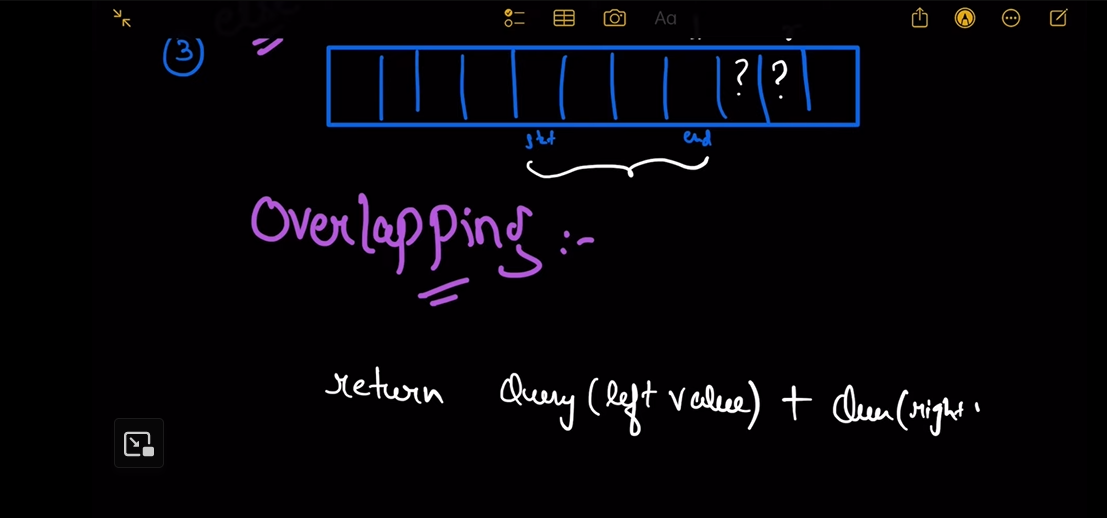 Aa
(3)
? ?
strt end
Overlapping :-
return Query (left value) + Quer (right